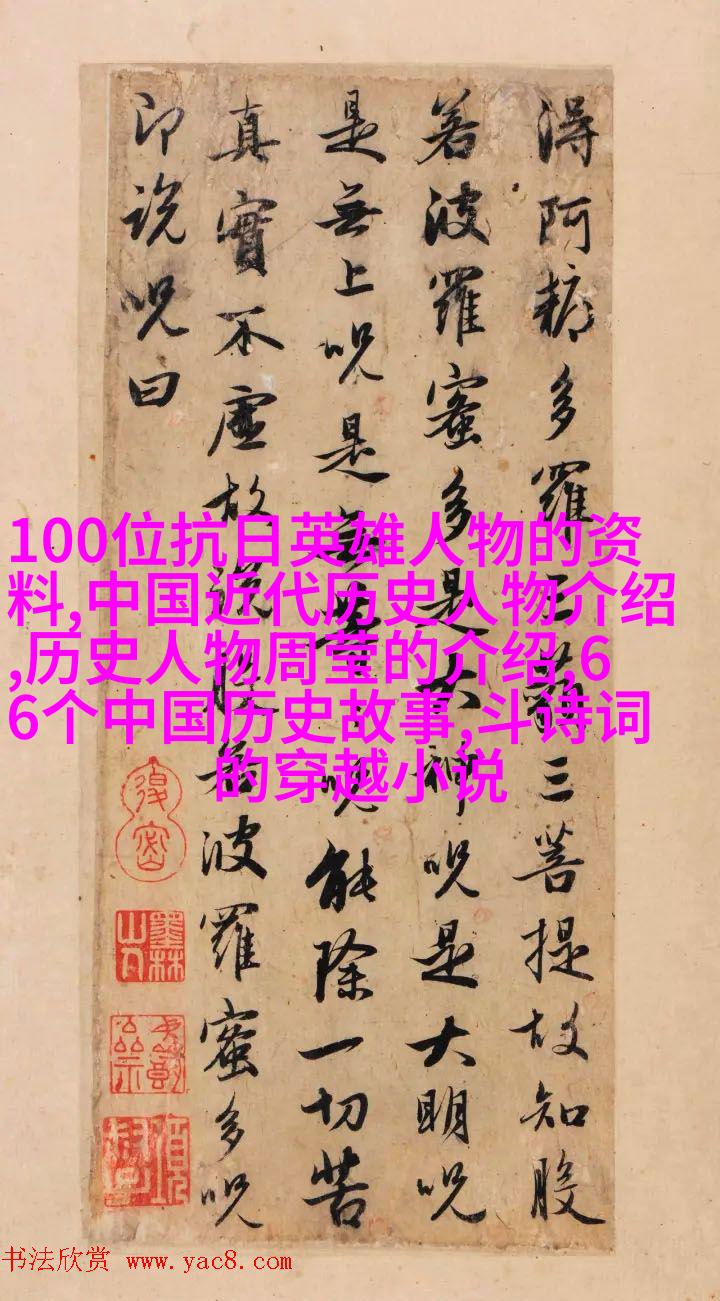 得阿耨多羅三藐三菩提故知般
若波羅蜜多是大神呪是大明呪
是無上呪是無等等呪能除一切苦
真實不虛故說般若波羅蜜多呪
即說呪曰
100位抗日英雄人物的资
料,中国近代历史人物介绍
,历史人物周莹的介绍,6
6个中国历史故事,斗诗词
的穿越小说
墨林山人
书法欣赏 www.yac8.com